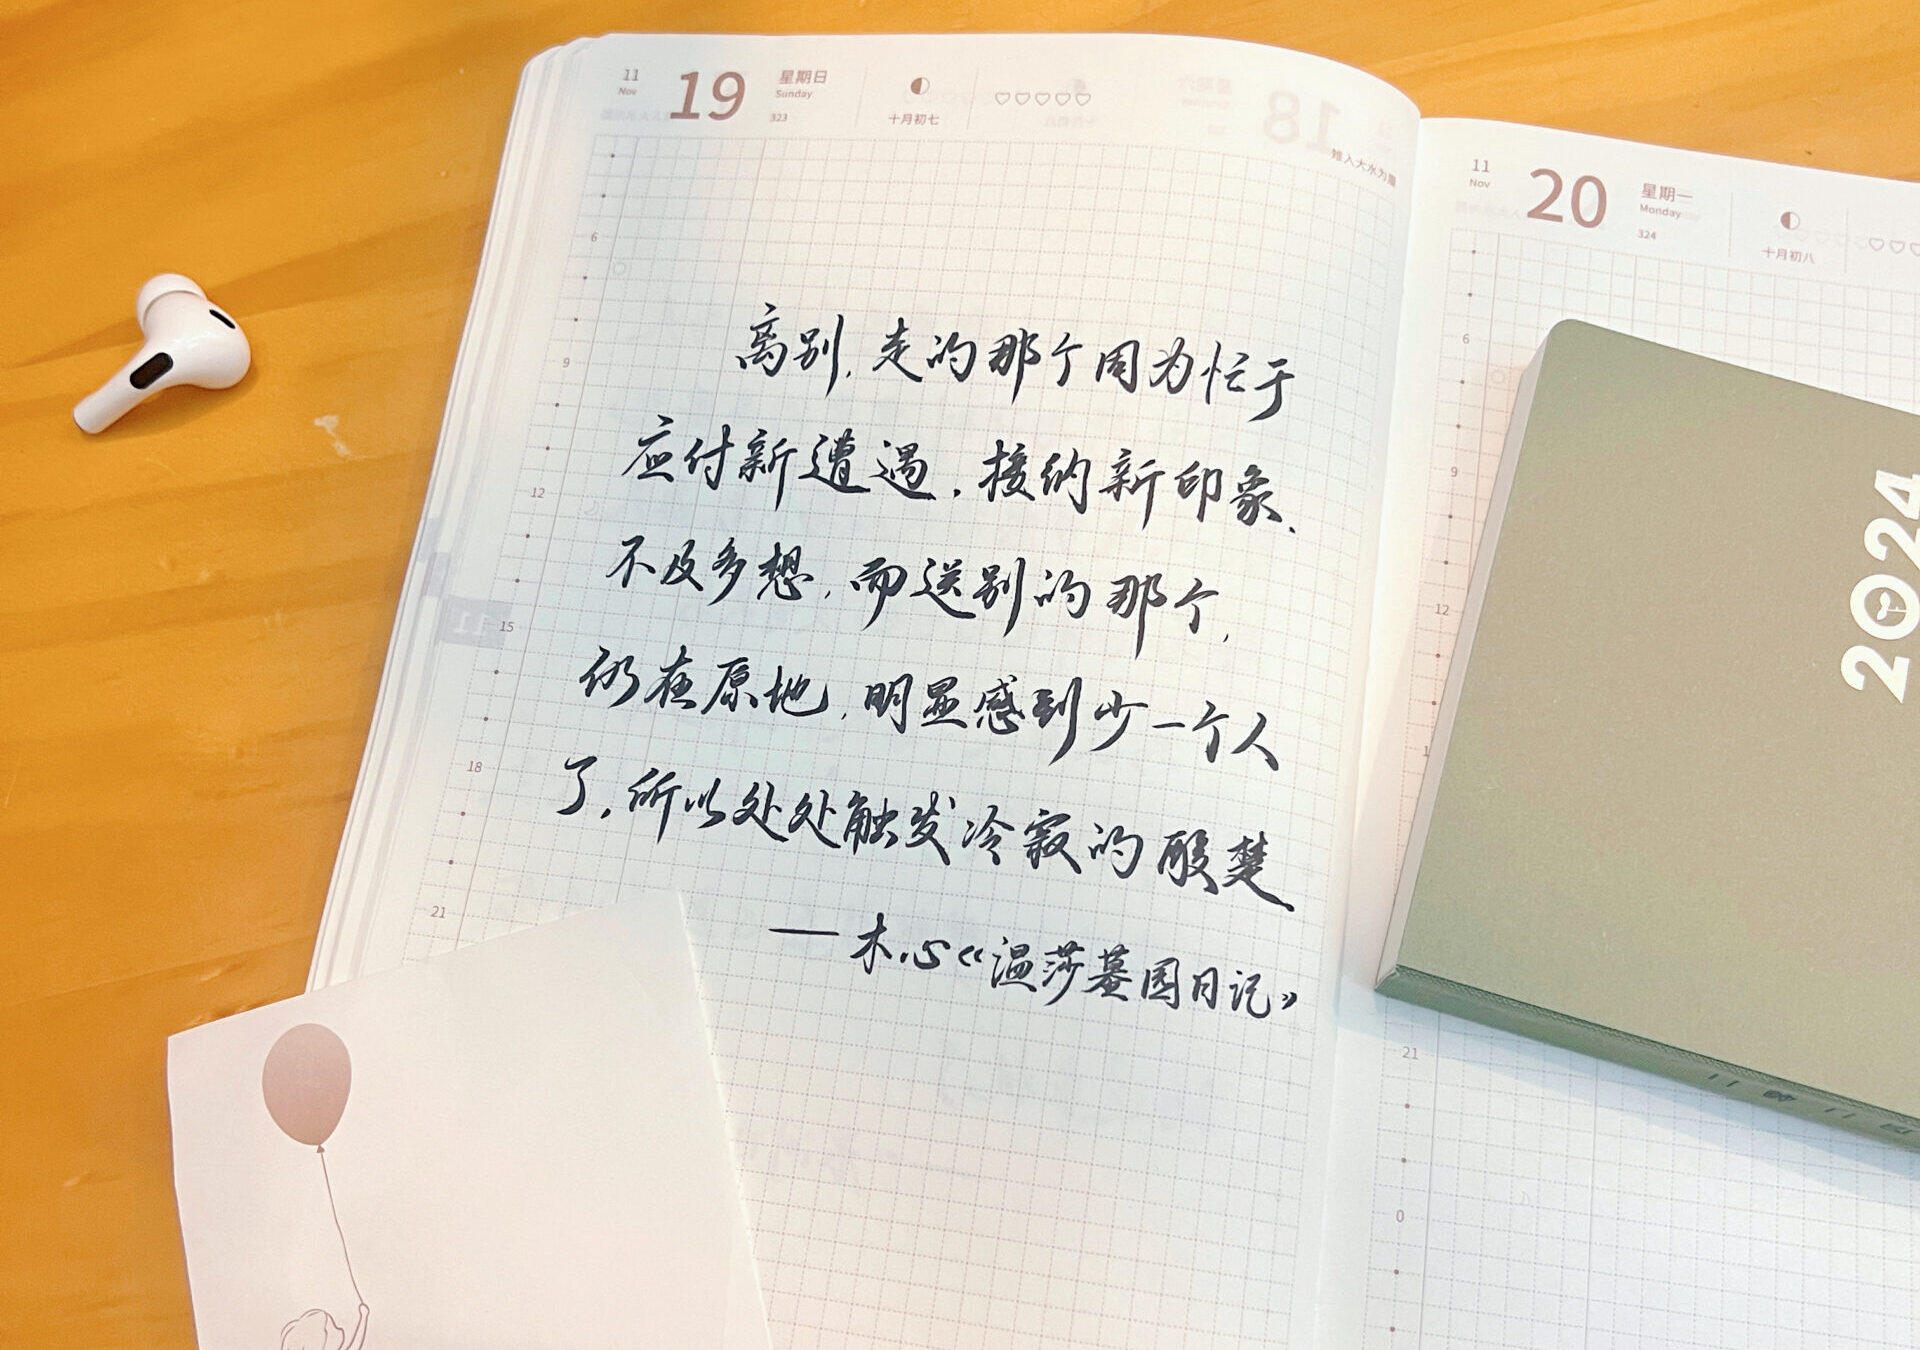 11
Nov
19
星期日
Sunday
323
十月初七
雉入大水为蜃
6
9
12
15
18
21
离别,走的那个因为忙于
应付新遭遇,接纳新印象、
不及多想,而送别的那个,
仍在原地,明显感到少一个人
了,所以处处触发冷寂的酸楚
——木心《温莎墓园日记》
11
Nov
20
星期一
Monday
324
十月初八
6
9
12
21
0
2024
11